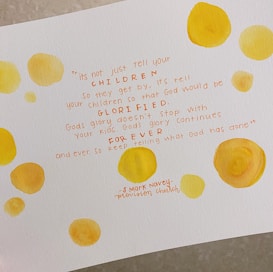 "It's not just tell your
CHILDREN
so they get by, it's tell
your children so that God would be
GLORIFIED.
God's glory doesn't stop with
your kids, God's glory continues
FOREVER
and ever so keep telling what God has done"